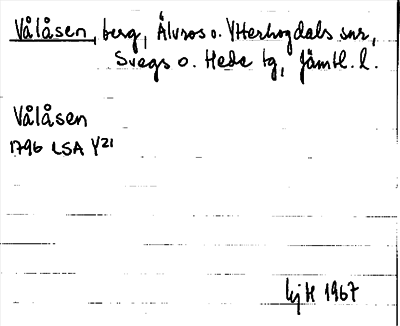 Vålåsen, berg, Älvros o. Ytterhogdals snr,
Svegs o. Hede tg, Jämtl. l.
Vålåsen
1796 LSA Y21
1967